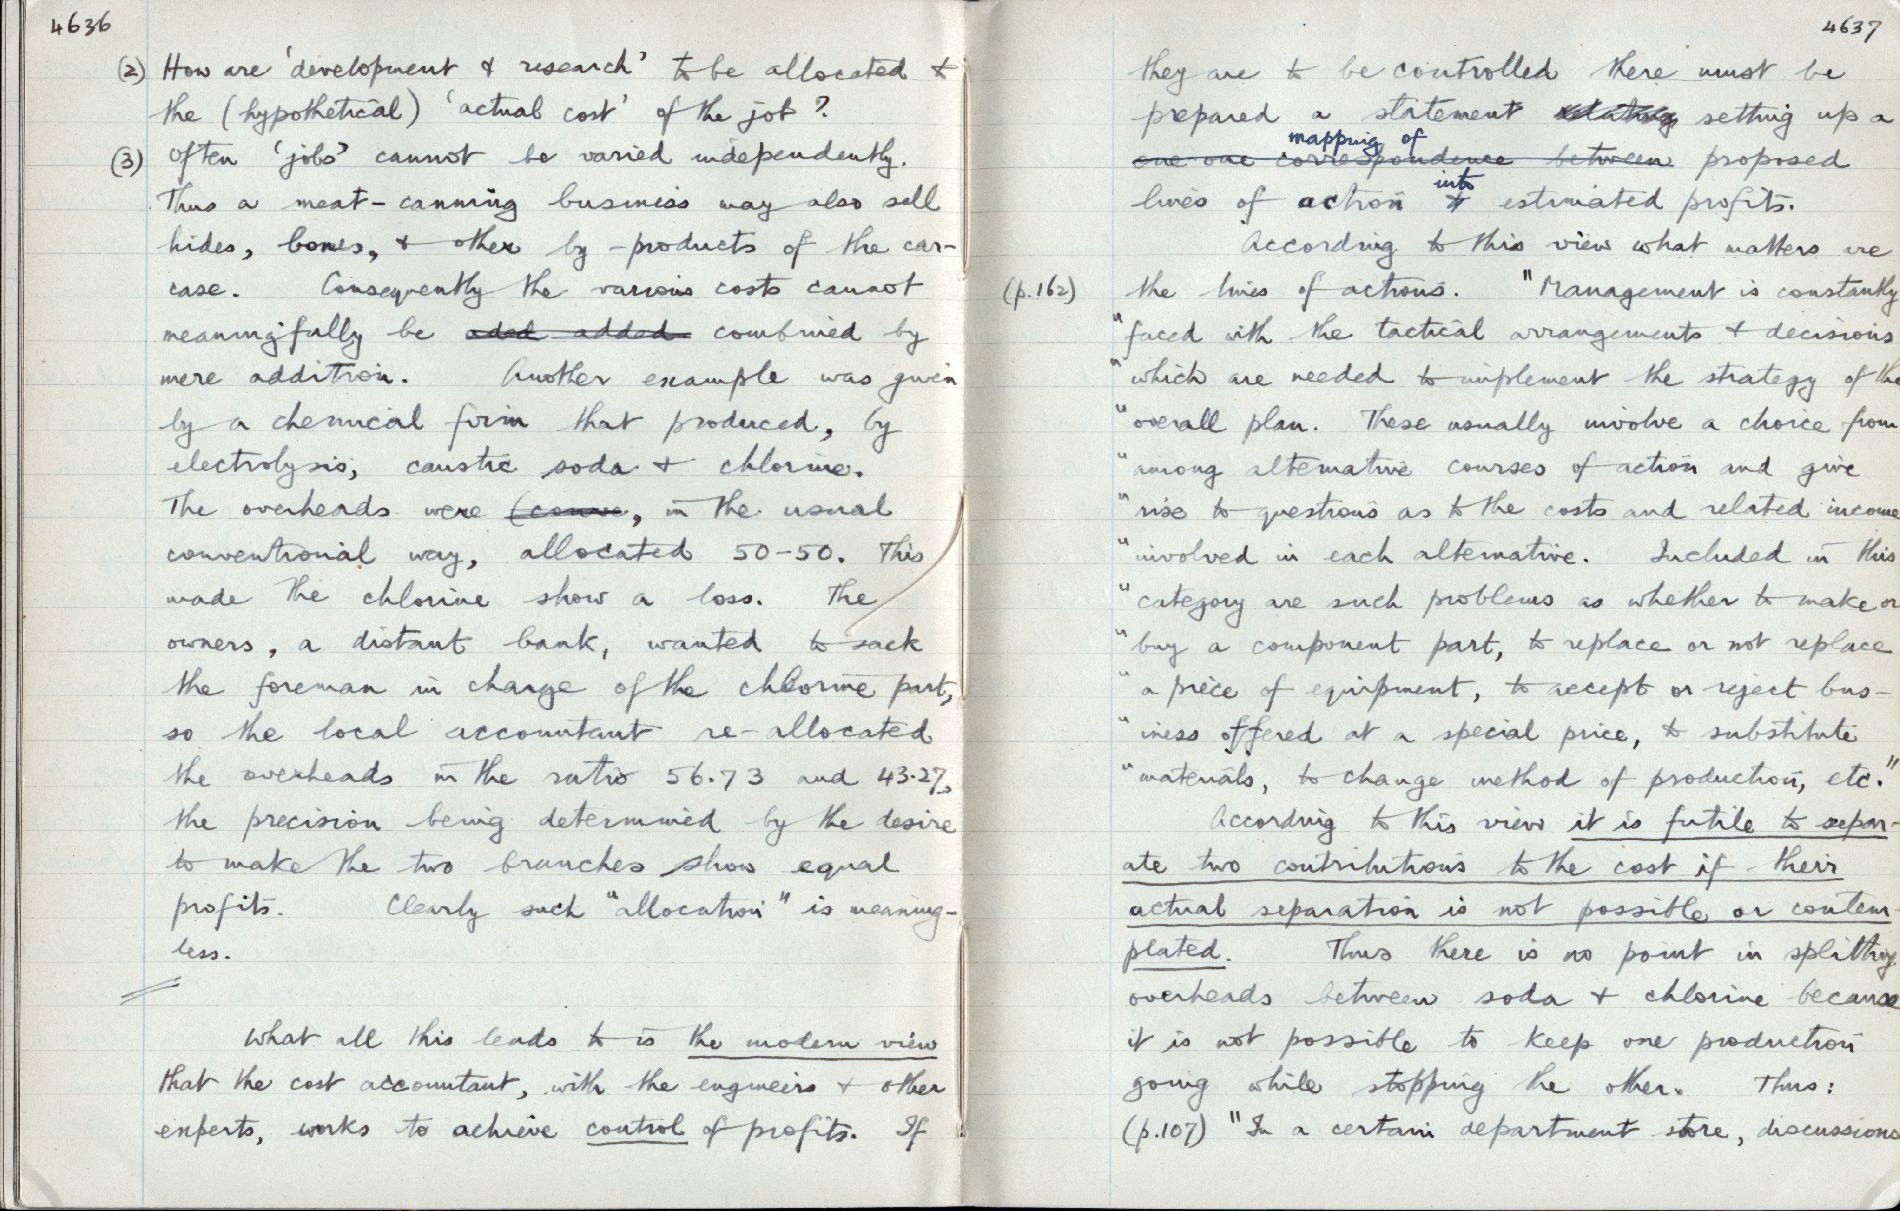 4636
(2) How are 'development & research' to be allocated to
the (hypothetical) 'actual cost' of the job?
(3) Often 'jobs' cannot be varied independently.
Thus a meat-canning business may also sell
hides, bones, & other by-products of the car-
case. Consequently the various costs cannot
meaningfully be aded added combined by
mere addition. Another example was given
by a chemical firm that produced, by
electrolysis, caustic soda & chlorine.
The overheads were (conve, in the usual
conventional way, allocated 50-50. This
made the chlorine show a loss. The
owners, a distant bank, wanted to sack
the foreman in charge of the chlorine part,
so the local accountant re-allocated
the overheads in the ratio 56.73 and 43.27,
the precision being determined by the desire
to make the two branches show equal
profits. Clearly such "allocation" is meaning-
less.
What all this leads to is the modern view
that the cost accountant, with the engineers & other
experts, works to achieve control of profits. If
4637
they are to be controlled there must be
prepared a statement setting up a
mapping of
one one correspondence between proposed
into
lines of action & estimated profits.
According to this view what matters are
(p.162) the lines of actions. "Management is constantly
"faced with the tactical arrangements & decisions
"which are needed to implement the strategy of the
"overall plan. These usually involve a choice from
"among alternative courses of action and give
"rise to questions as to the costs and related income
"involved in each alternative. Included in this
"category are such problems as whether to make or
"buy a component part, to replace or not replace
"a piece of equipment, to accept or reject bus-
"iness offered at a special price, to substitute
"materials, to change method of production, etc."
According to this view it is futile to separ-
ate two contributions to the cost if their
actual separation is not possible or contem-
plated. Thus there is no point in splitting
overheads between soda & chlorine because
it is not possible to keep one production
going while stopping the other. Thus:
(p.107) "In a certain department store, discussions